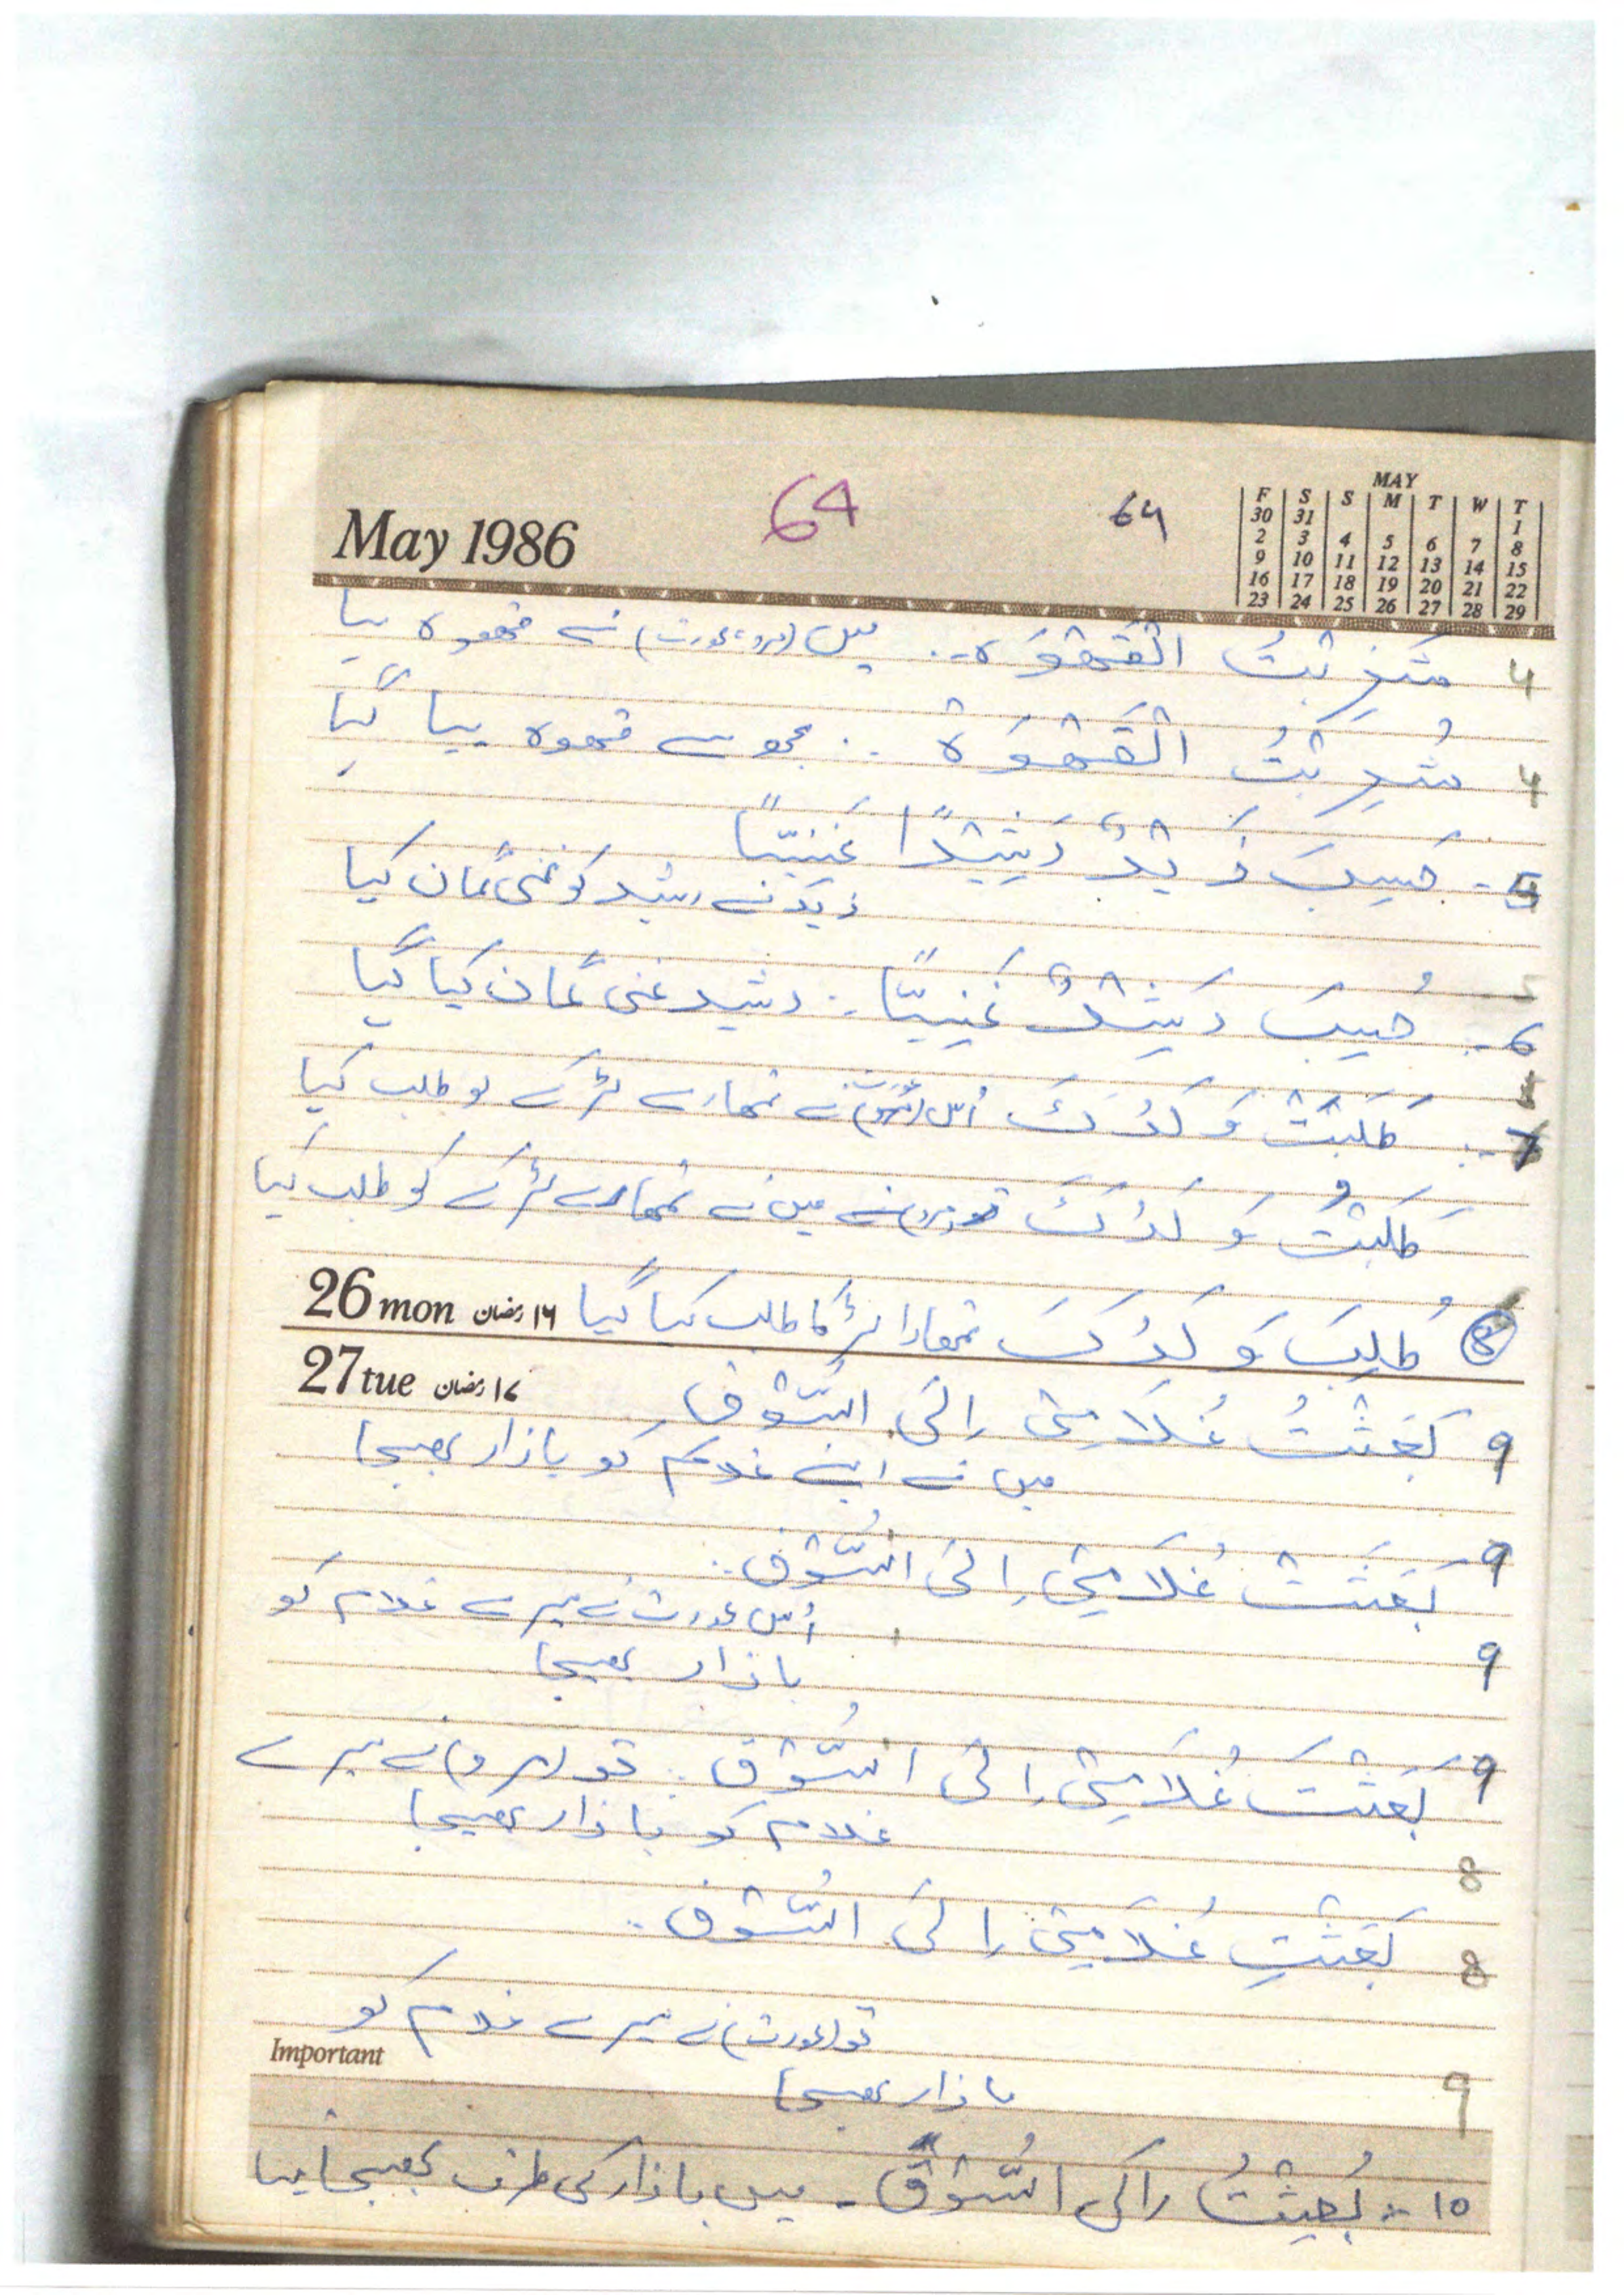 May 1986
64
64
MAY
F S S M T W T
30 31 1
2 3 4 5 6 7 8
9 10 11 12 13 14 15
16 17 18 19 20 21 22
23 24 25 26 27 28 29
4 شَرِبْتُ الْقَهْوَةَ .. میں (مرد، عورت) نے قہوہ پیا
4 شُرِبَتُ الْقَهْوَةُ .. مجھ سے قہوہ پیا گیا
5- حَسِبَ زَيْدٌ رَشِيْدًا غَنِيًّا
زید نے رشید کو غنی گمان کیا
6- حُسِبَ رَشِيْدٌ غَنِيًّا .. رشید غنی گمان کیا گیا
7- طَلَبَتْ وَلَدَكَ اُس (عورت) نے تمھارے لڑکے کو طلب کیا
طَلَبْتُ وَلَدَكَ میں نے تمھارے لڑکے کو طلب کیا
8 طُلِبَ وَلَدُكَ تمھارا لڑکا طلب کیا گیا
26 mon ۱۶ رمضان
27 tue ۱۷ رمضان
9 بَعَثْتُ غُلَامِيْ اِلَى السُّوْقِ
میں نے اپنے غلام کو بازار بھیجا
9 بَعَثَتْ غُلَامِيْ اِلَى السُّوْقِ ..
اُس عورت نے میرے غلام کو
9 بازار بھیجا
9 بَعَثْتَ غُلَامِيْ اِلَى السُّوْقِ .. تو (مرد) نے میرے
غلام کو بازار بھیجا
8
8 بَعَثْتِ غُلَامِيْ اِلَى السُّوْقِ ..
تو (عورت) نے میرے غلام کو
Important
9 بازار بھیجا
10 :- بُعِثْتُ اِلَى السُّوْقِ - میں بازار کی طرف بھیجا گیا